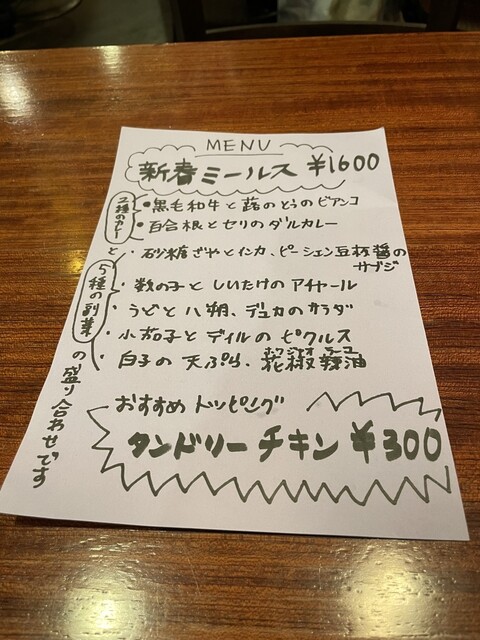 MENU
新春ミールス ¥1600
2種のカレー
・黒毛和牛と蕗のとうのビアンコ
・百合根とセリのダルカレー
と
5種の副菜
・砂糖ざやとインカ、ピーシェン豆板醤の
サブジ
・数の子としいたけのアチャール
・うどと八朔、デュカのサラダ
・小茄子とディルのピクルス
・白子の天ぷら、花椒辣油
の盛り合わせです
おすすめトッピング
タンドリーチキン ¥300